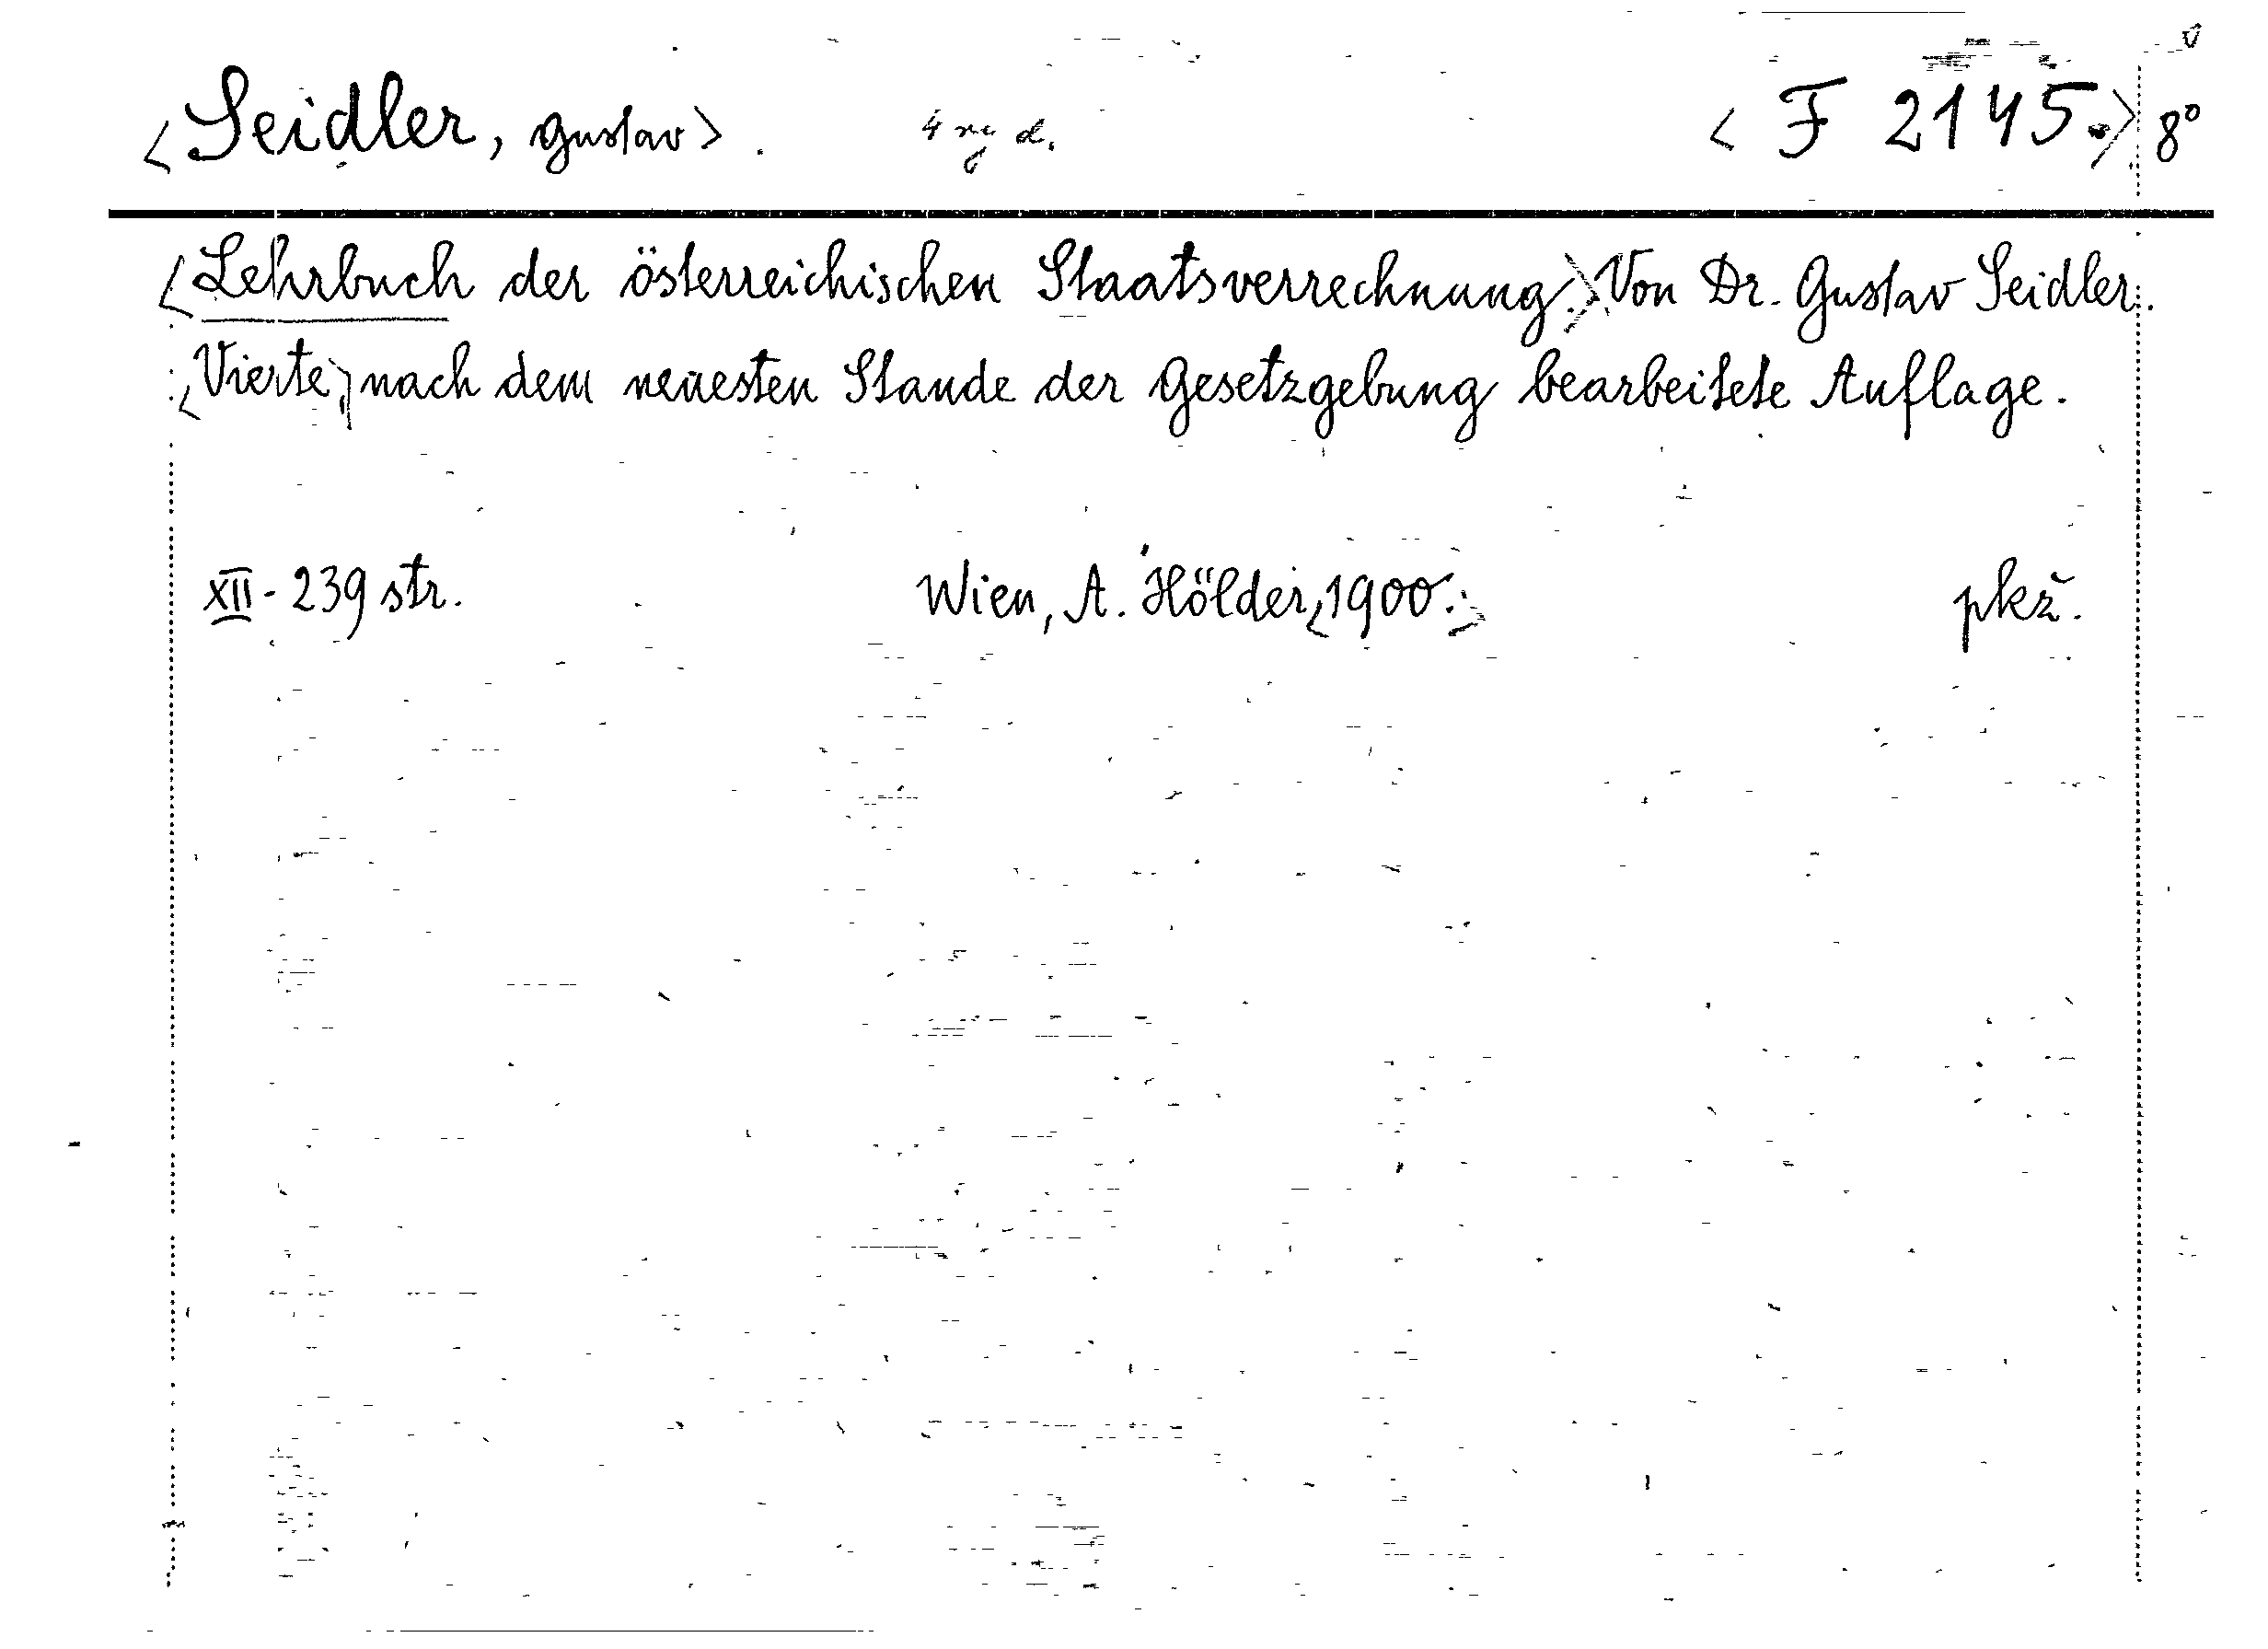 <Seidler, Gustav>. 4 vyd. <F 2145.> 8°
<Lehrbuch der österreichischen Staatsverrechnung.> Von Dr. Gustav Seidler.
<Vierte,> nach dem neuesten Stande der Gesetzgebung bearbeitete Auflage.
XII - 239 str. Wien, A. Hölder, <1900.> pkž.